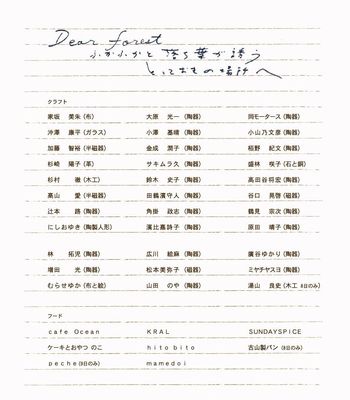 Dear forest
ふかふかと 落ち葉が誘う
とっておきの場所へ
クラフト
家坂 美朱（布） 大原 光一（陶器） 岡モータース（陶器）
沖澤 康平（ガラス） 小澤 基晴（陶器） 小山乃文彦（陶器）
加藤 智裕（半磁器） 金成 潤子（陶器） 栢野 紀文（陶器）
杉崎 陽子（革） サキムラ久（陶器） 盛林 咲子（石と銅）
杉村 徹（木工） 鈴木 史子（陶器） 高田谷将宏（陶器）
髙山 愛（半磁器） 田鶴濱守人（陶器） 谷口 晃啓（磁器）
辻本 路（陶器） 角掛 政志（陶器） 鶴見 宗次（陶器）
にしおゆき（陶製人形） 濱比嘉詩子（陶器） 原田 晴子（陶器）
林 拓児（陶器） 広川 絵麻（陶器） 廣谷ゆかり（陶器）
増田 光（陶器） 松本美弥子（磁器） ミヤチヤスヨ（陶器）
むらせゆか（布と絵） 山田 のや（陶器） 湯山 良史（木工 8日のみ）
フード
cafe Ocean KRAL SUNDAYSPICE
ケーキとおやつ のこ hito bito 古山製パン（8日のみ）
peche（9日のみ） mamedoi